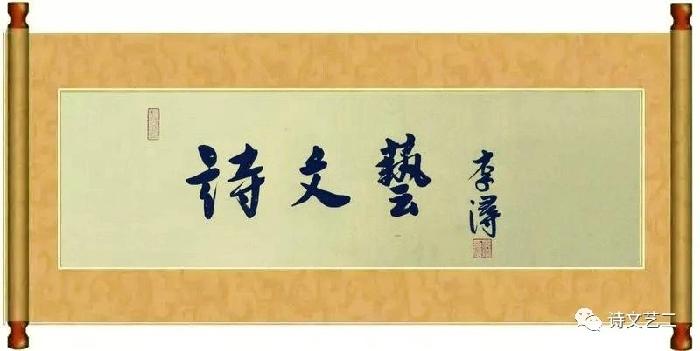 詩文藝
李潯
诗文艺二